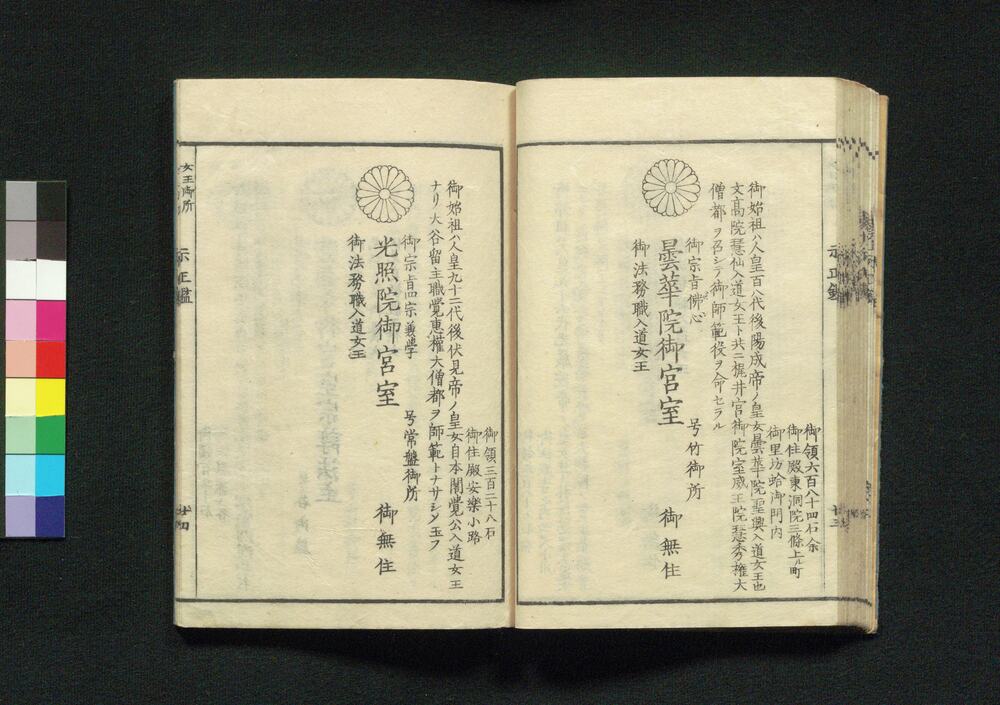 御領六百八十四石余
御住殿東洞院三條上ル町
御里坊蛤御門内
御始祖ハ人皇百八代後陽成帝ノ皇女曇華院聖興入道女王也
文高院慈仙入道女王ト共ニ梶井宮御院室威王院慈秀權大
僧都ヲ召シテ御師範役ヲ命セラル
御宗旨佛心
号竹御所
曇華院御宮室
御無住
御法務職入道女王
示正鑑
廿三
御領三百二十八石
御住殿安樂小路
御始祖ハ人皇九十二代後伏見帝ノ皇女自本閣覺公入道女王
ナリ大谷留主職覺惠權大僧都ヲ師範トナサシメ玉フ
御宗旨四宗義學
号常盤御所
光照院御宮室
御無住
御法務職入道女王
女王御所
示正鑑
廿四